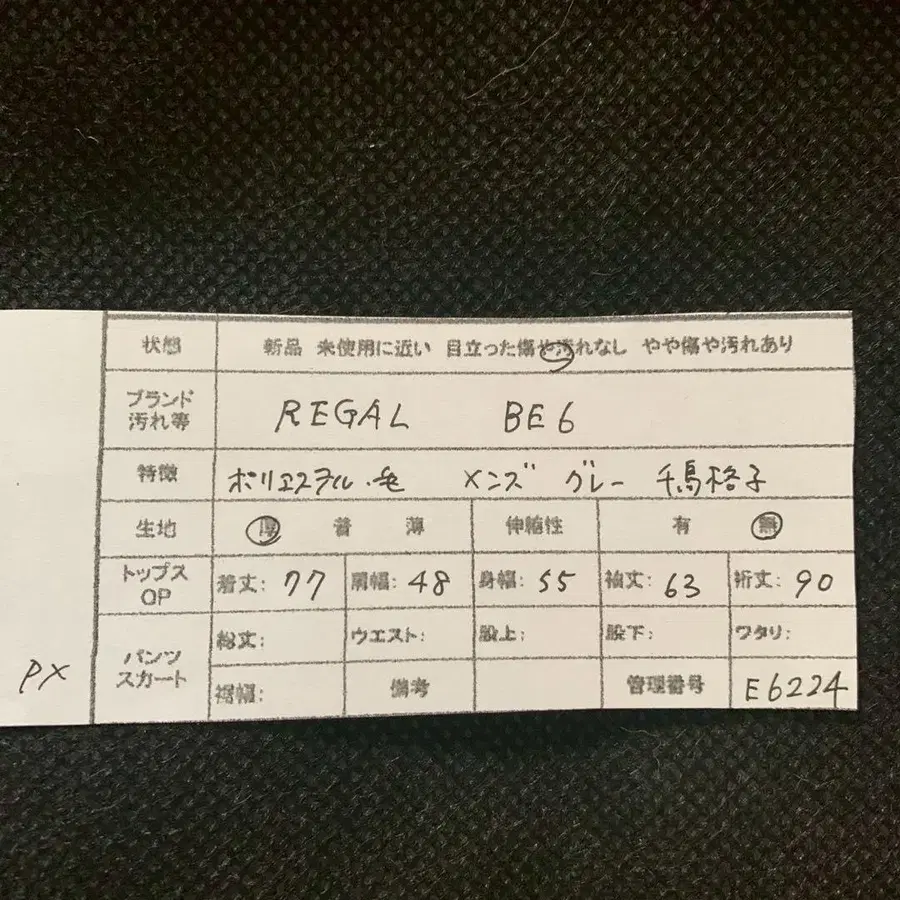 状態 新品 未使用に近い 目立った傷や汚れなし やや傷や汚れあり
ブランド
汚れ等 REGAL BE6
特徴 ポリエステル・毛 メンズ グレー 千鳥格子
生地 厚 普 薄 伸縮性 有 無
トップス
OP 着丈: 77 肩幅: 48 身幅: 55 袖丈: 63 裄丈: 90
パンツ
スカート 総丈: ウエスト: 股上: 股下: ワタリ:
PX 裾幅: 備考 管理番号 E6224